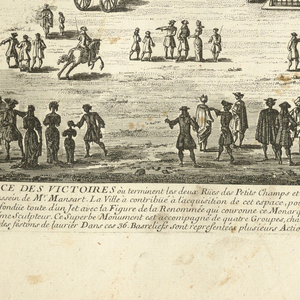 CE DES VICTOIRES où terminent les deux Rües des Petits Champs et
ssein de Mr. Mansart. La Ville à contribüe à l'acquisition de cet espace, po
fondüe toute d'un Jet avec la Figure de la Renommée qui couronne ce Monarq
me Sculpteur. Ce Superbe Monument est accompagné de quatre Groupes, cha
des festons de laurier Dans ces 36. Basreliefs sont representées plusieurs Actio